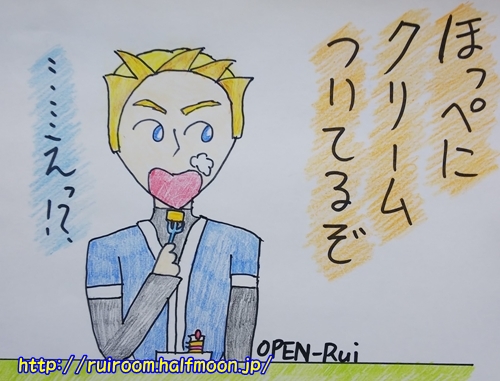 ほっぺに
クリーム
ついてるぞ
……えっ!?
OPEN-Rui
http://ruiroom.halfmoon.jp/